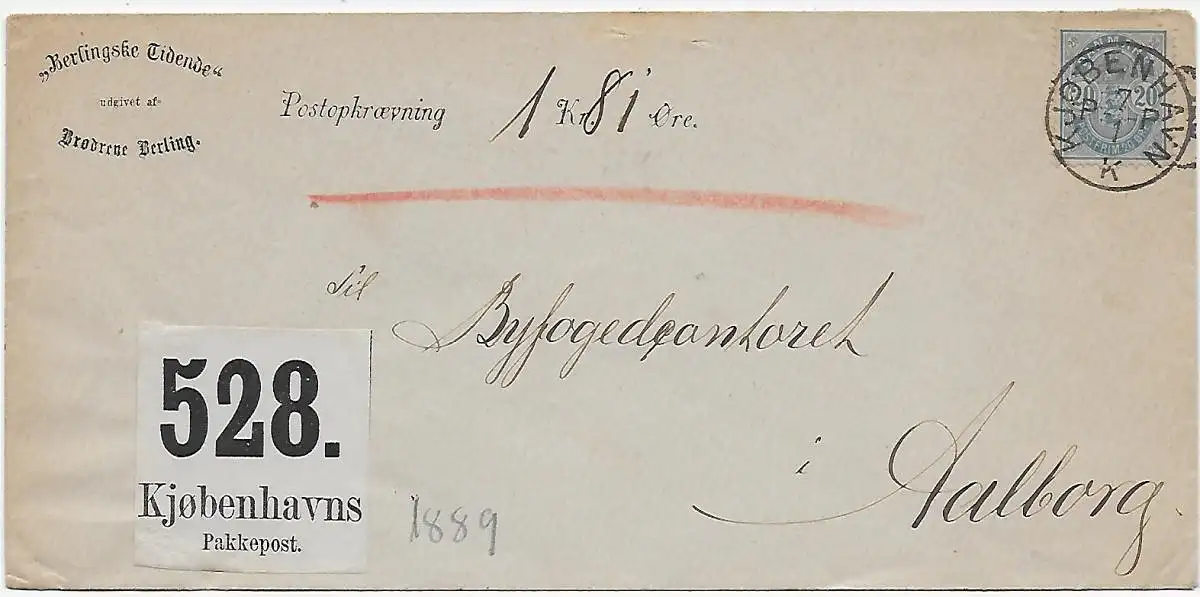 „Berlingske Tidende“
udgivet af
Brødrene Berling.
Postopkrævning 1 Kr. 81 Øre.
KJØBENHAVN
7
1
K
20
20
Til
Byfogedcontoret
i Aalborg.
528.
Kjøbenhavns
Pakkepost.
1889